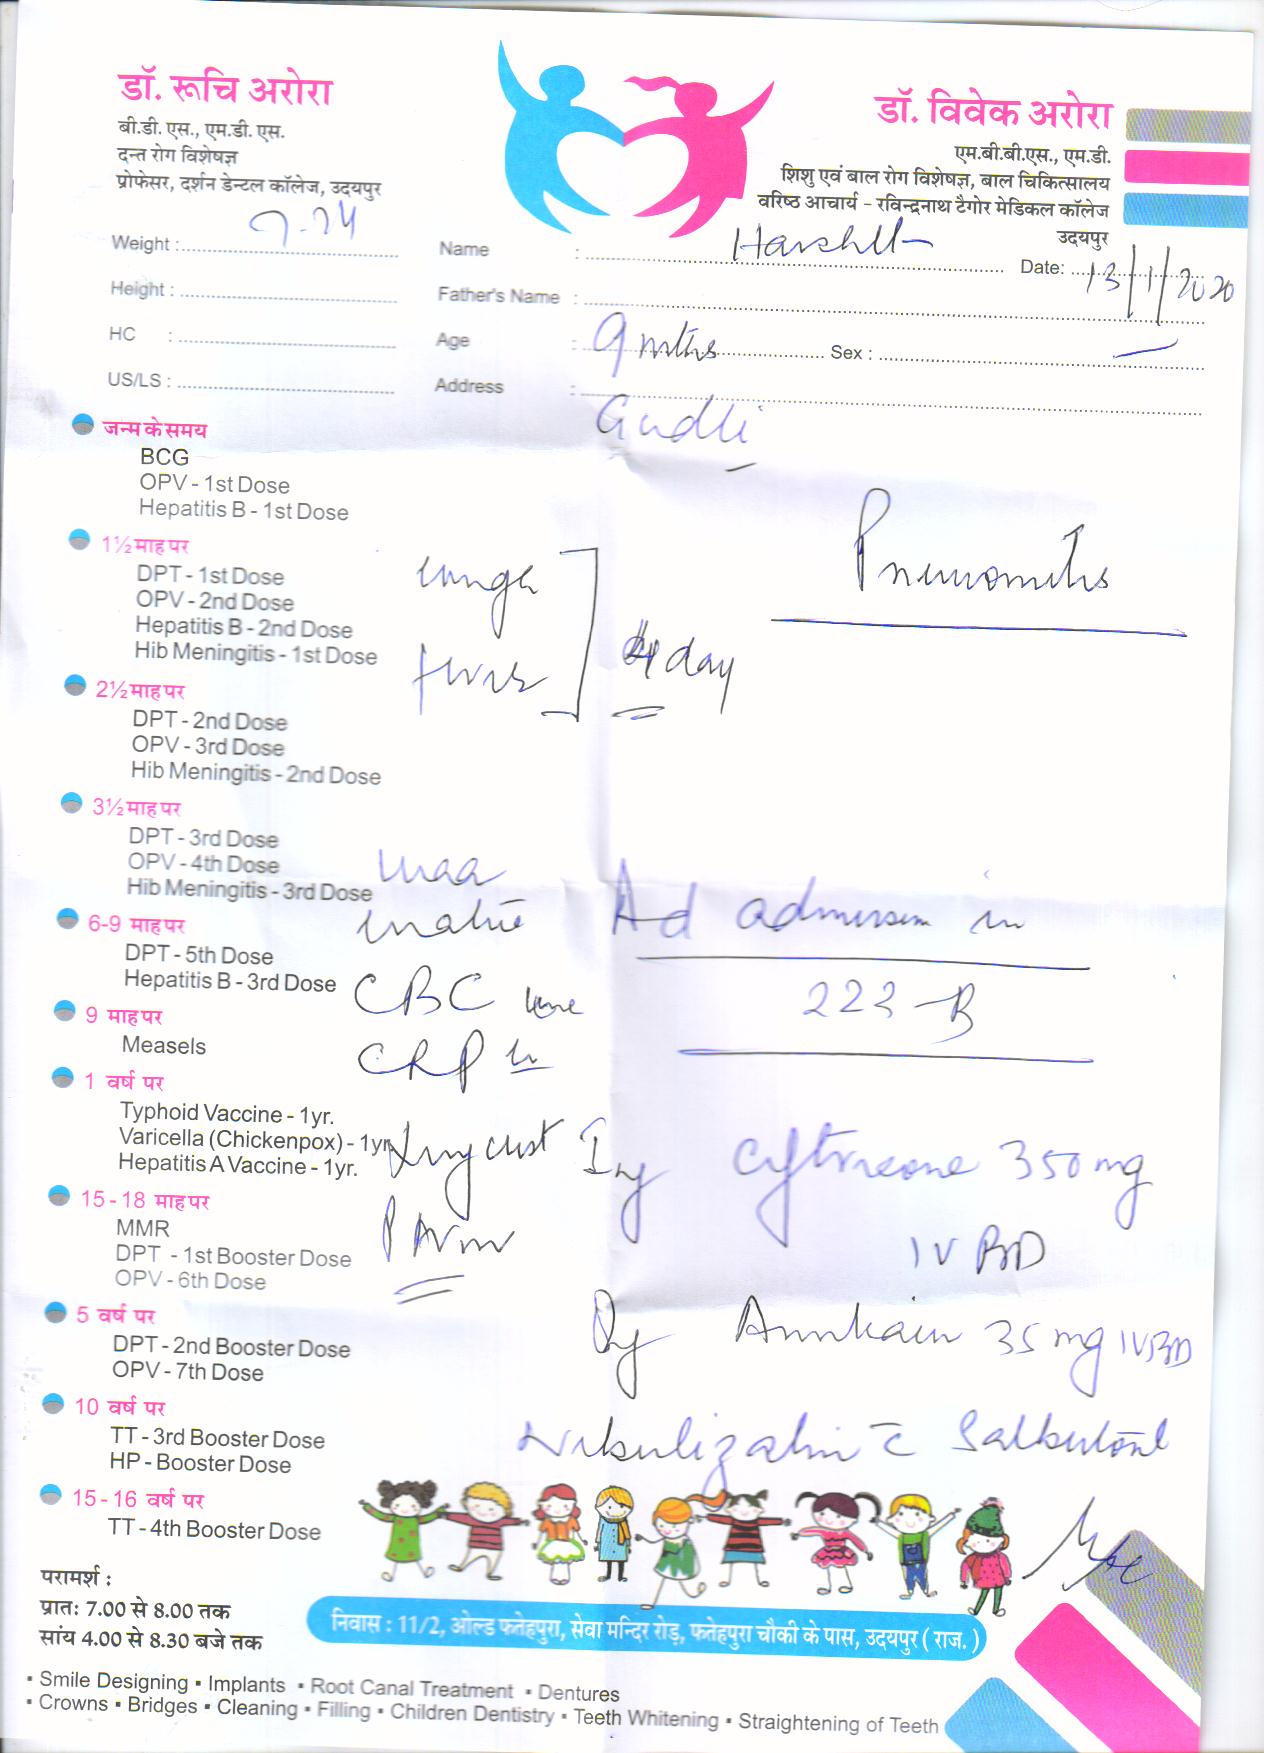 डॉ. रूचि अरोरा
बी.डी. एस., एम.डी. एस.
दन्त रोग विशेषज्ञ
प्रोफेसर, दर्शन डेन्टल कॉलेज, उदयपुर
डॉ. विवेक अरोरा
एम.बी.बी.एस., एम.डी.
शिशु एवं बाल रोग विशेषज्ञ, बाल चिकित्सालय
वरिष्ठ आचार्य - रविन्द्रनाथ टैगोर मेडिकल कॉलेज
उदयपुर
Weight :
Name : Harshit Date: 13/1/2020
Height :
Father's Name :
HC :
Age : 9 mths Sex :
US/LS :
Address :
जन्म के समय
BCG
OPV - 1st Dose
Hepatitis B - 1st Dose
1½ माह पर
DPT - 1st Dose
OPV - 2nd Dose
Hepatitis B - 2nd Dose
Hib Meningitis - 1st Dose
Pneumonitis
4 day
2½ माह पर
DPT - 2nd Dose
OPV - 3rd Dose
Hib Meningitis - 2nd Dose
3½ माह पर
DPT - 3rd Dose
OPV - 4th Dose
Hib Meningitis - 3rd Dose
6-9 माह पर
DPT - 5th Dose
Hepatitis B - 3rd Dose
Ad admission in
CBC
9 माह पर
Measels
CRP
1 वर्ष पर
Typhoid Vaccine - 1yr.
Varicella (Chickenpox) - 1yr.
Hepatitis A Vaccine - 1yr.
Inj Ceftriaxone 350 mg
IV BD
15-18 माह पर
MMR
DPT - 1st Booster Dose
OPV - 6th Dose
Inj Amikacin 35 mg IV BD
5 वर्ष पर
DPT - 2nd Booster Dose
OPV - 7th Dose
10 वर्ष पर
TT - 3rd Booster Dose
HP - Booster Dose
Nebulization c Salbutamol
15-16 वर्ष पर
TT - 4th Booster Dose
परामर्श :
प्रातः 7.00 से 8.00 तक
सांय 4.00 से 8.30 बजे तक
निवास : 11/2, ओल्ड फतेहपुरा, सेवा मन्दिर रोड़, फतेहपुरा चौकी के पास, उदयपुर ( राज. )
▪ Smile Designing ▪ Implants ▪ Root Canal Treatment ▪ Dentures
▪ Crowns ▪ Bridges ▪ Cleaning ▪ Filling ▪ Children Dentistry ▪ Teeth Whitening ▪ Straightening of Teeth